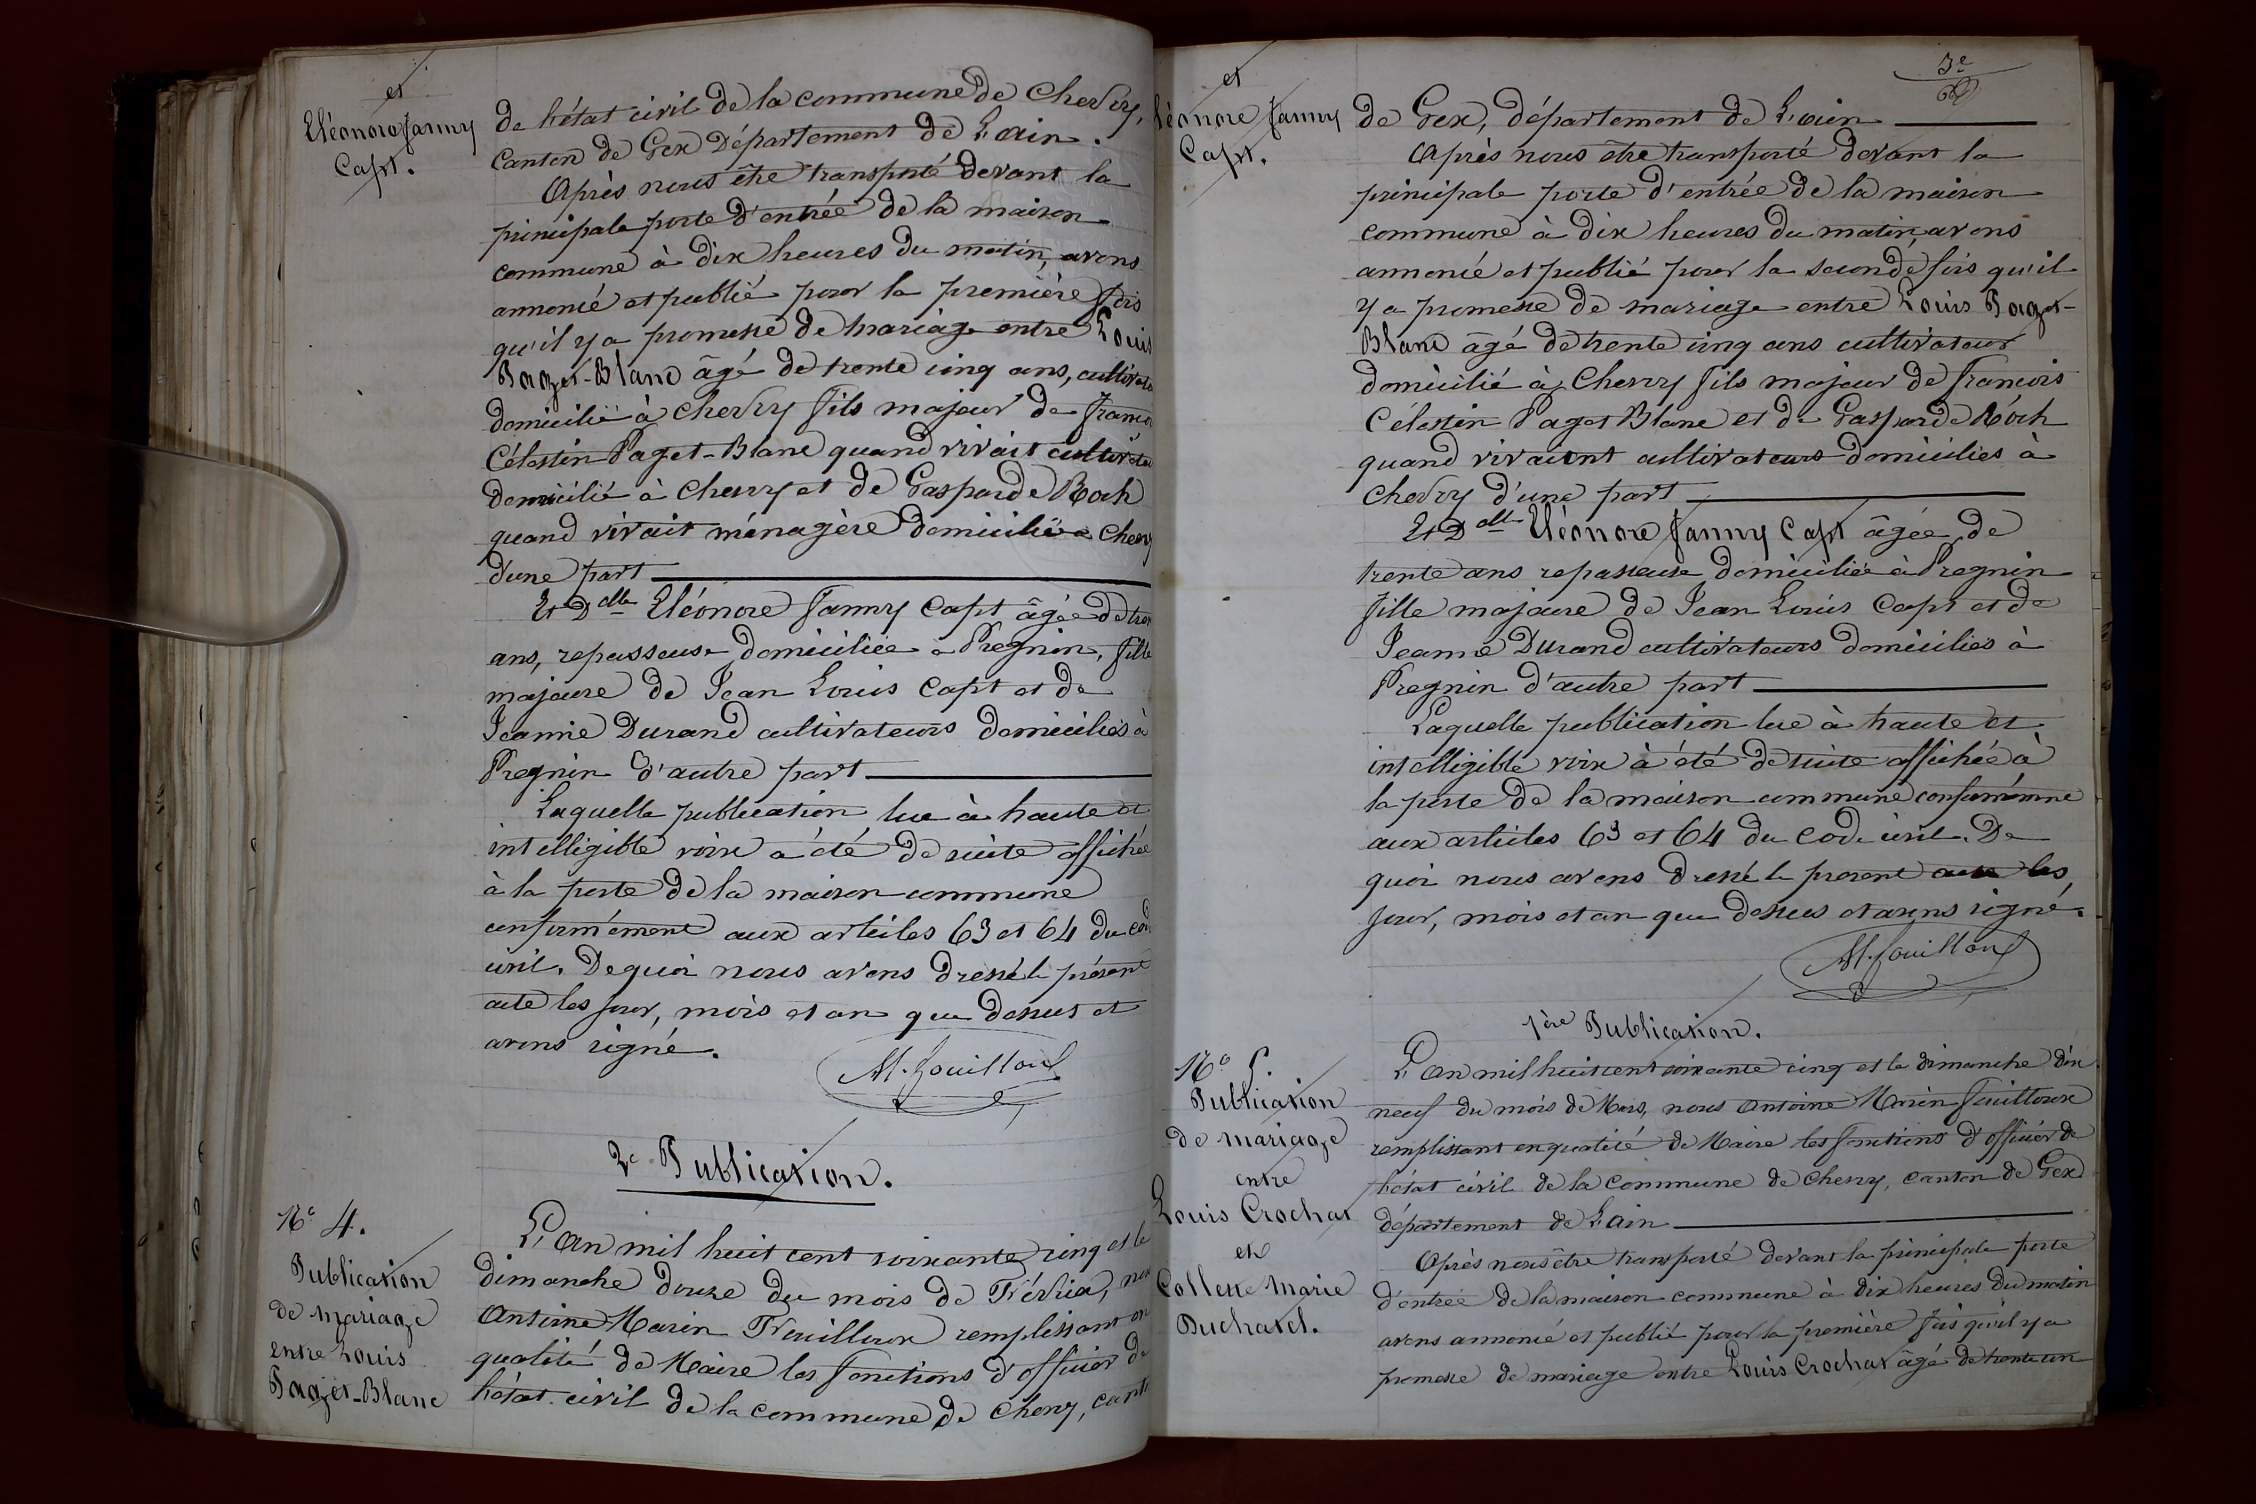 et
Eléonore Fanny
Capt.
de l'état civil de la commune de Chevry,
Canton de Gex Département de L'ain.
Après nous être transporté devant la
principale porte d'entrée de la maison
commune à dix heures du matin, avons
annoncé et publié pour la première fois
qu'il y a promesse de mariage entre Louis
Paget-Blanc âgé de trente cinq ans, cultivate
domicilié à Chevry fils majeur de Franco
Célestin Paget-Blanc quand vivait cultivate
domicilié à Chevry et de Gasparde Roch
quand vivait ménagère domicilié à Chevry
d'une part
Et Dlle Eléonore Fanny Capt âgée de tren
ans, repasseuse domiciliée à Pregnin, fille
majeure de Jean Louis Capt et de
Jeanne Durand cultivateurs domiciliés à
Pregnin d'autre part
Laquelle publication lue à haute et
intelligible voix a été de suite affichée
à la porte de la maison commune
conformément aux articles 63 et 64 du cod
civil. De quoi nous avons dressé le présent
acte les jour, mois et an que dessus et
avons signé.
M. fouilloux
2e Publication.
No 4.
Publication
de mariage
entre Louis
Paget-Blanc
L'an mil huit cent soixante cinq et le
dimanche douze du mois de Février, nou
Antoine Marin Fouilloux remplissant en
qualité de Maire les fonctions d'officier de
l'état civil de la commune de Chevry, canto
et
léonore Fanny
Capt.
3e
de Gex, département de L'ain
Après nous être transporté devant la
principale porte d'entrée de la maison
commune à dix heures du matin, avons
annoncé et publié pour la seconde fois qu'il
y a promesse de mariage entre Louis Paget-
Blanc âgé de trente cinq ans cultivateur
domicilié à Chevry fils majeur de François
Célestin Paget Blanc et de Gasparde Roch
quand vivaient cultivateurs domiciliés à
Chevry d'une part
Et Dlle Eléonore Fanny Capt âgée de
trente ans repasseuse domiciliée à Pregnin
fille majeure de Jean Louis Capt et de
Jeanne Durand cultivateurs domiciliés à
Pregnin d'autre part
Laquelle publication lue à haute et
intelligible voix à été de suite affichée à
la porte de la maison commune conformémne
aux articles 63 et 64 du code civil. De
quoi nous avons dressé le present acte les
jour, mois et an que dessus et avons signé.
M. fouilloux
1ère Publication.
No 5.
Publication
de mariage
entre
Louis Crochat
et
Collette Marie
Duchatel.
L'an mil huit cent soixante cinq et le dimanche dix
neuf du mois de Mars, nous Antoine Marin Fouilloux
remplissant en qualité de Maire les fonctions d'officier de
l'état civil de la Commune de Chevry, Canton de Gex
département de L'ain
Après nous être transporté devant la principale porte
d'entrée de la maison commune à dix heures du matin
avons annoncé et publié pour la première fois qu'il y a
promesse de mariage entre Louis Crochat âgé de trente un